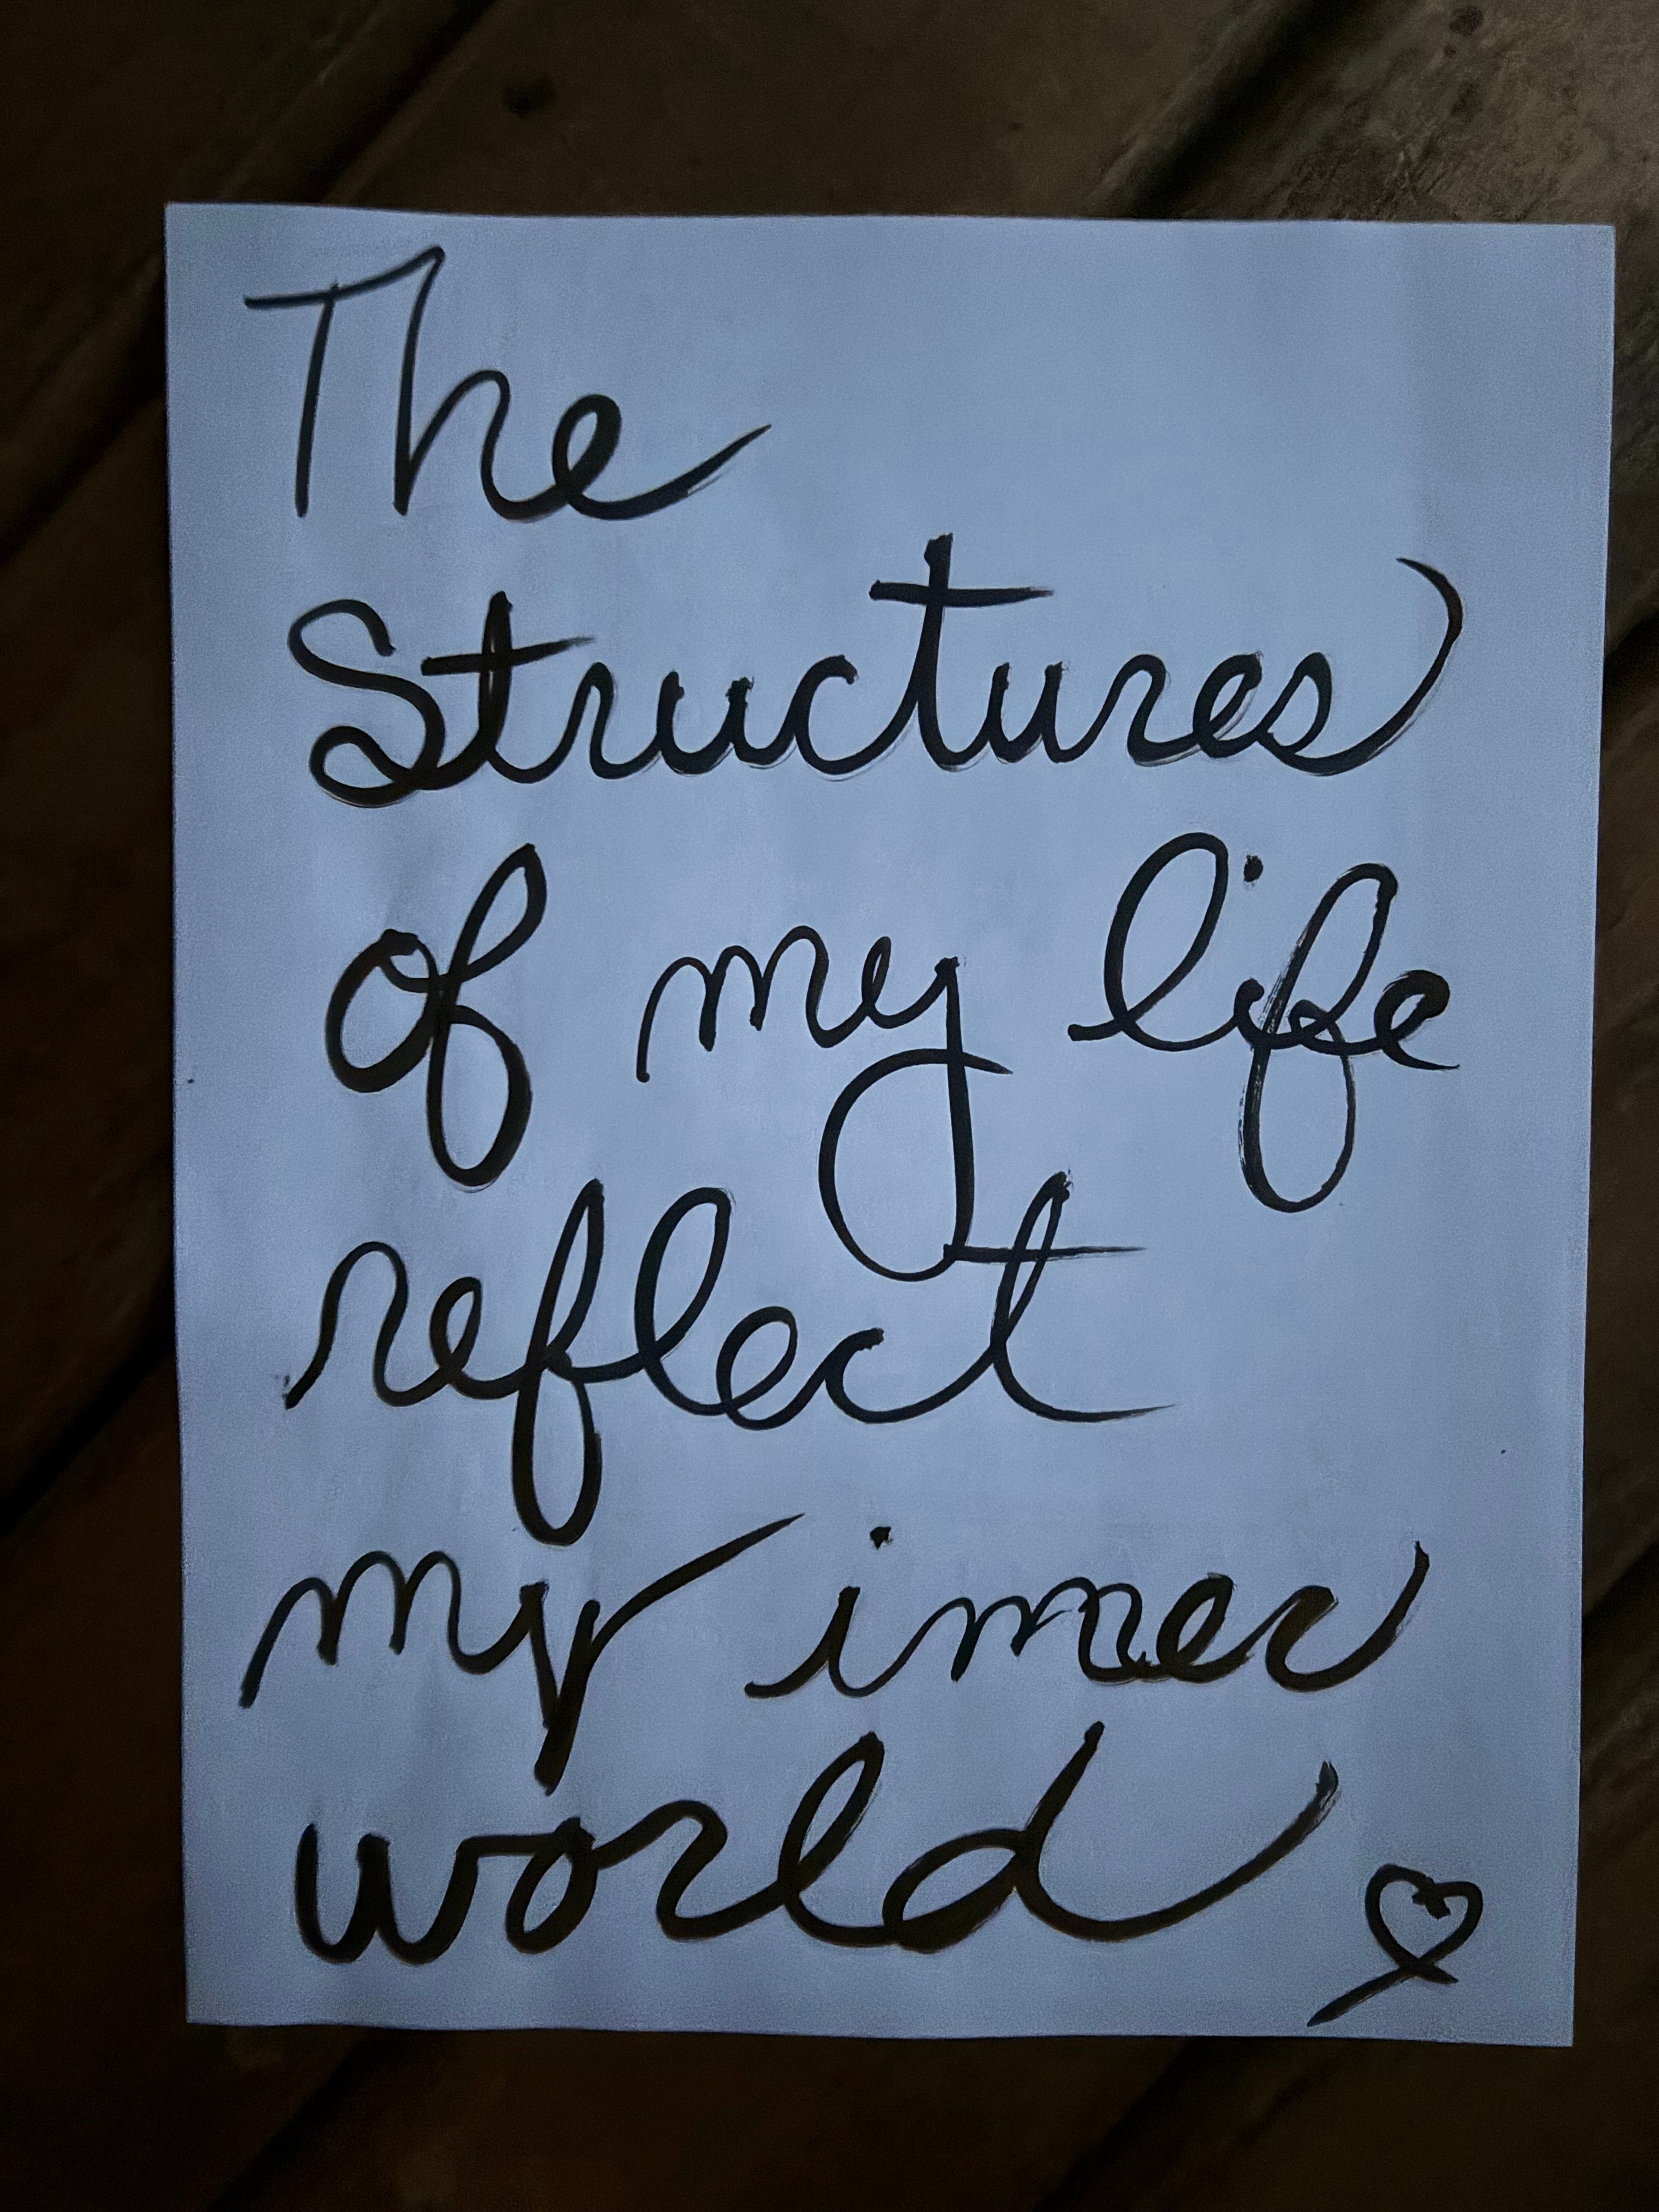 The
Structures
of my life
reflect
my inner
world